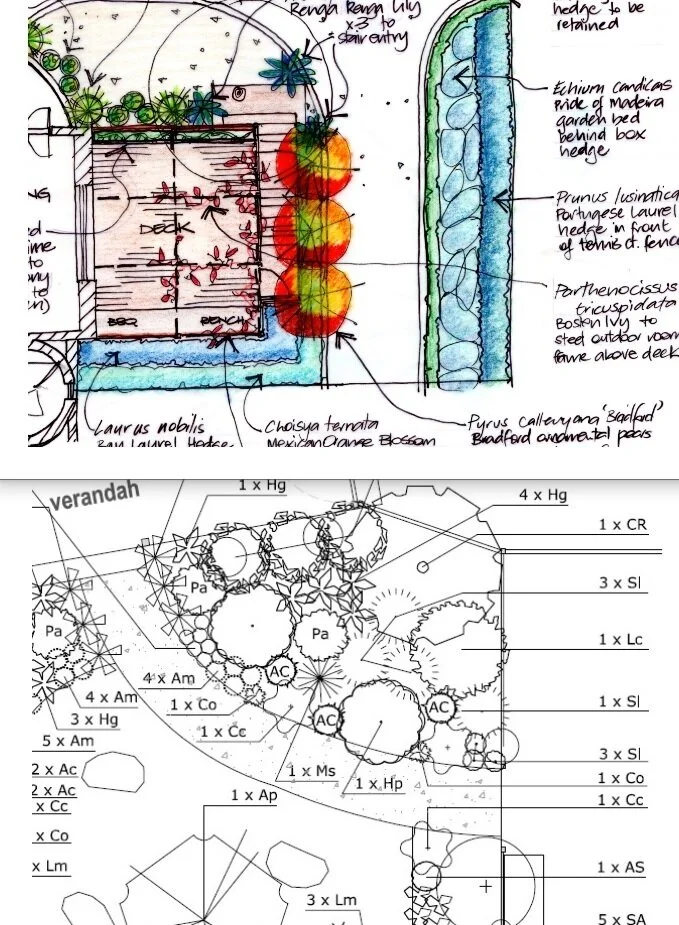 Renga Renga Lily
x 3 to
stair entry
hedge to be
retained
Echium candicas
Pride of Madeira
garden bed
behind box
hedge
Prunus lusinatica
Portugese Laurel
hedge in front
of tennis ct. fence
Parthenocissus
tricuspidata
Boston Ivy to
steel outdoor room
frame above deck
DECK
BBQ
BENCH
Laurus nobilis
Bay Laurel Hedge
Choisya ternata
Mexican Orange Blossom
Pyrus calleryana 'Bradford'
Bradford ornamental pears
NG
ed
ime
to
ny
to
verandah
1 x Hg
4 x Hg
1 x CR
3 x Sl
1 x Lc
1 x Sl
3 x Sl
1 x Co
1 x Cc
1 x AS
5 x SA
Pa
Pa
Pa
AC
AC
AC
4 x Am
1 x Co
1 x Cc
1 x Ms
1 x Hp
4 x Am
3 x Hg
5 x Am
2 x Ac
2 x Ac
x Cc
x Co
x Lm
1 x Ap
3 x Lm